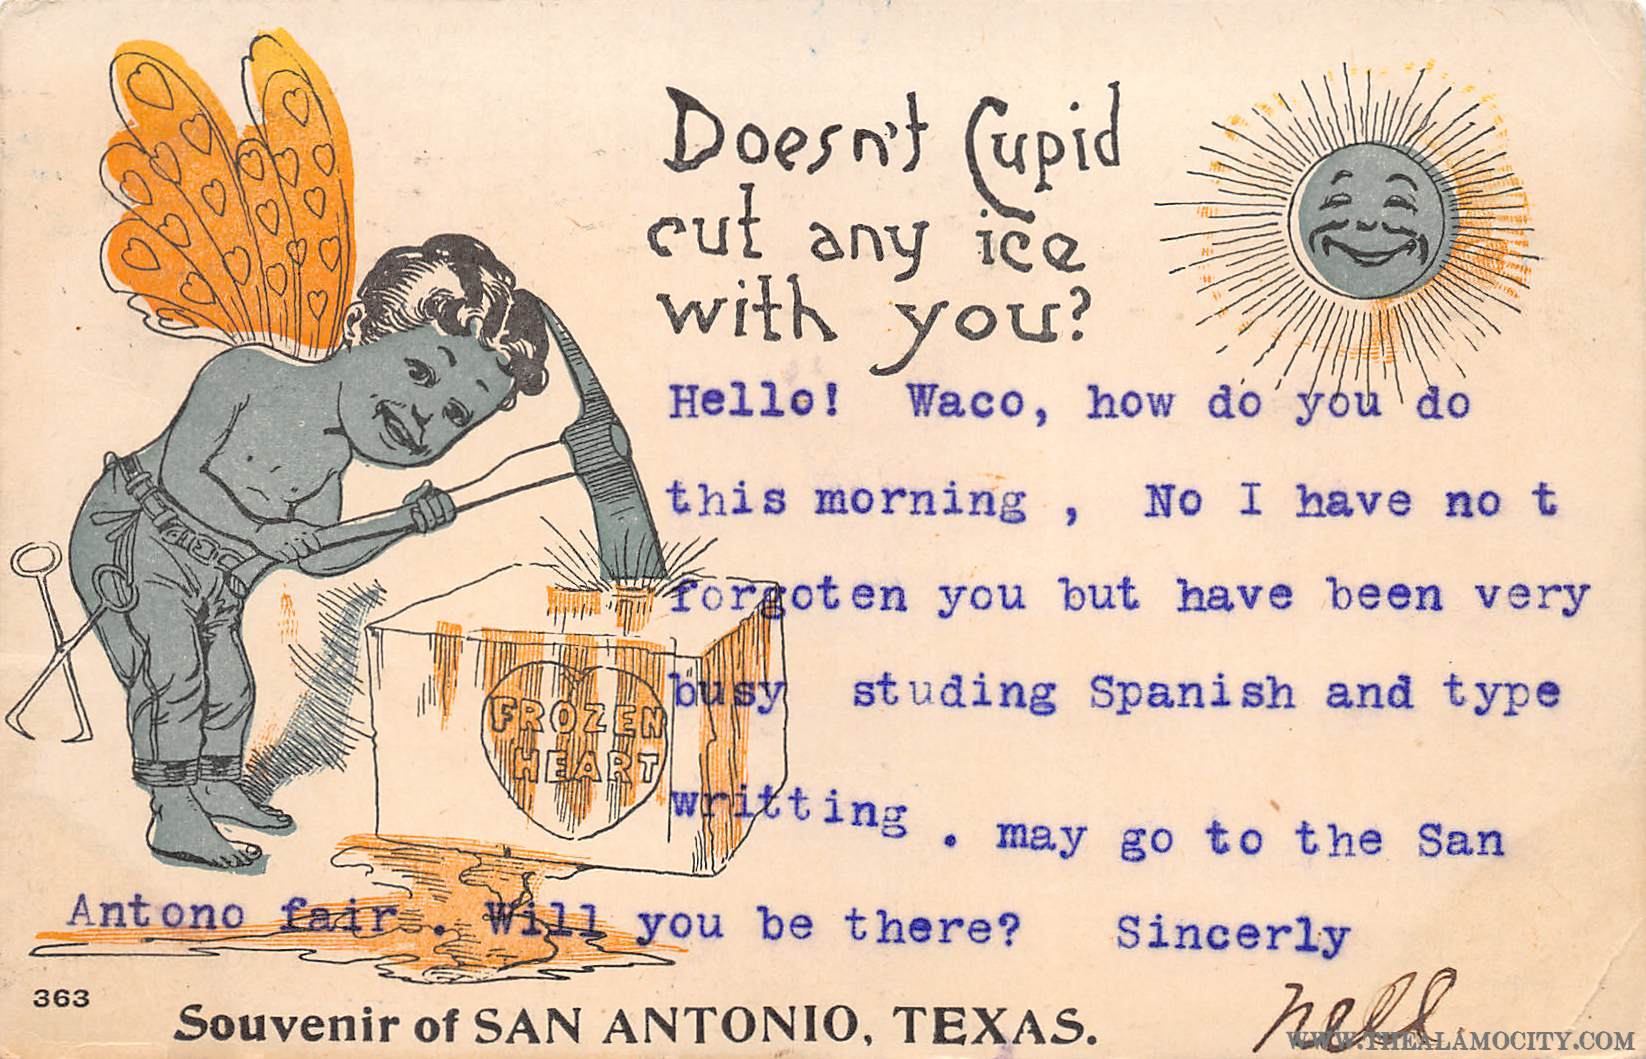 Doesn't Cupid
cut any ice
with you?
Hello! Waco, how do you do
this morning , No I have no t
forgoten you but have been very
FROZEN
HEART
busy studing Spanish and type
writting . may go to the San
Antono fair . Will you be there? Sincerly
Nell.
363
Souvenir of SAN ANTONIO, TEXAS.
WWW.THEALAMOCITY.COM